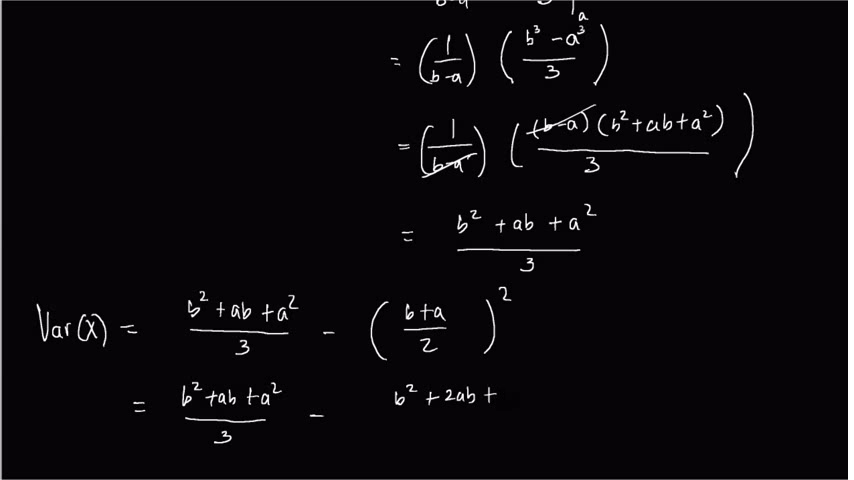 = (1/(b-a)) ((b³ - a³)/3)
= (1/(b-a)) ((b-a)(b² + ab + a²)/3)
= (b² + ab + a²)/3
Var(X) = (b² + ab + a²)/3 - ((b+a)/2)²
= (b² + ab + a²)/3 - b² + 2ab +